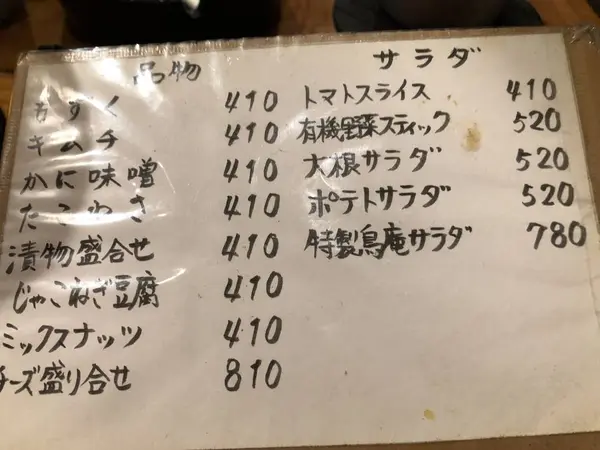 品物
もずく 410
キムチ 410
かに味噌 410
たこわさ 410
漬物盛合せ 410
じゃこねぎ豆腐 410
ミックスナッツ 410
チーズ盛り合せ 810
サラダ
トマトスライス 410
有機野菜スティック 520
大根サラダ 520
ポテトサラダ 520
特製鳥庵サラダ 780